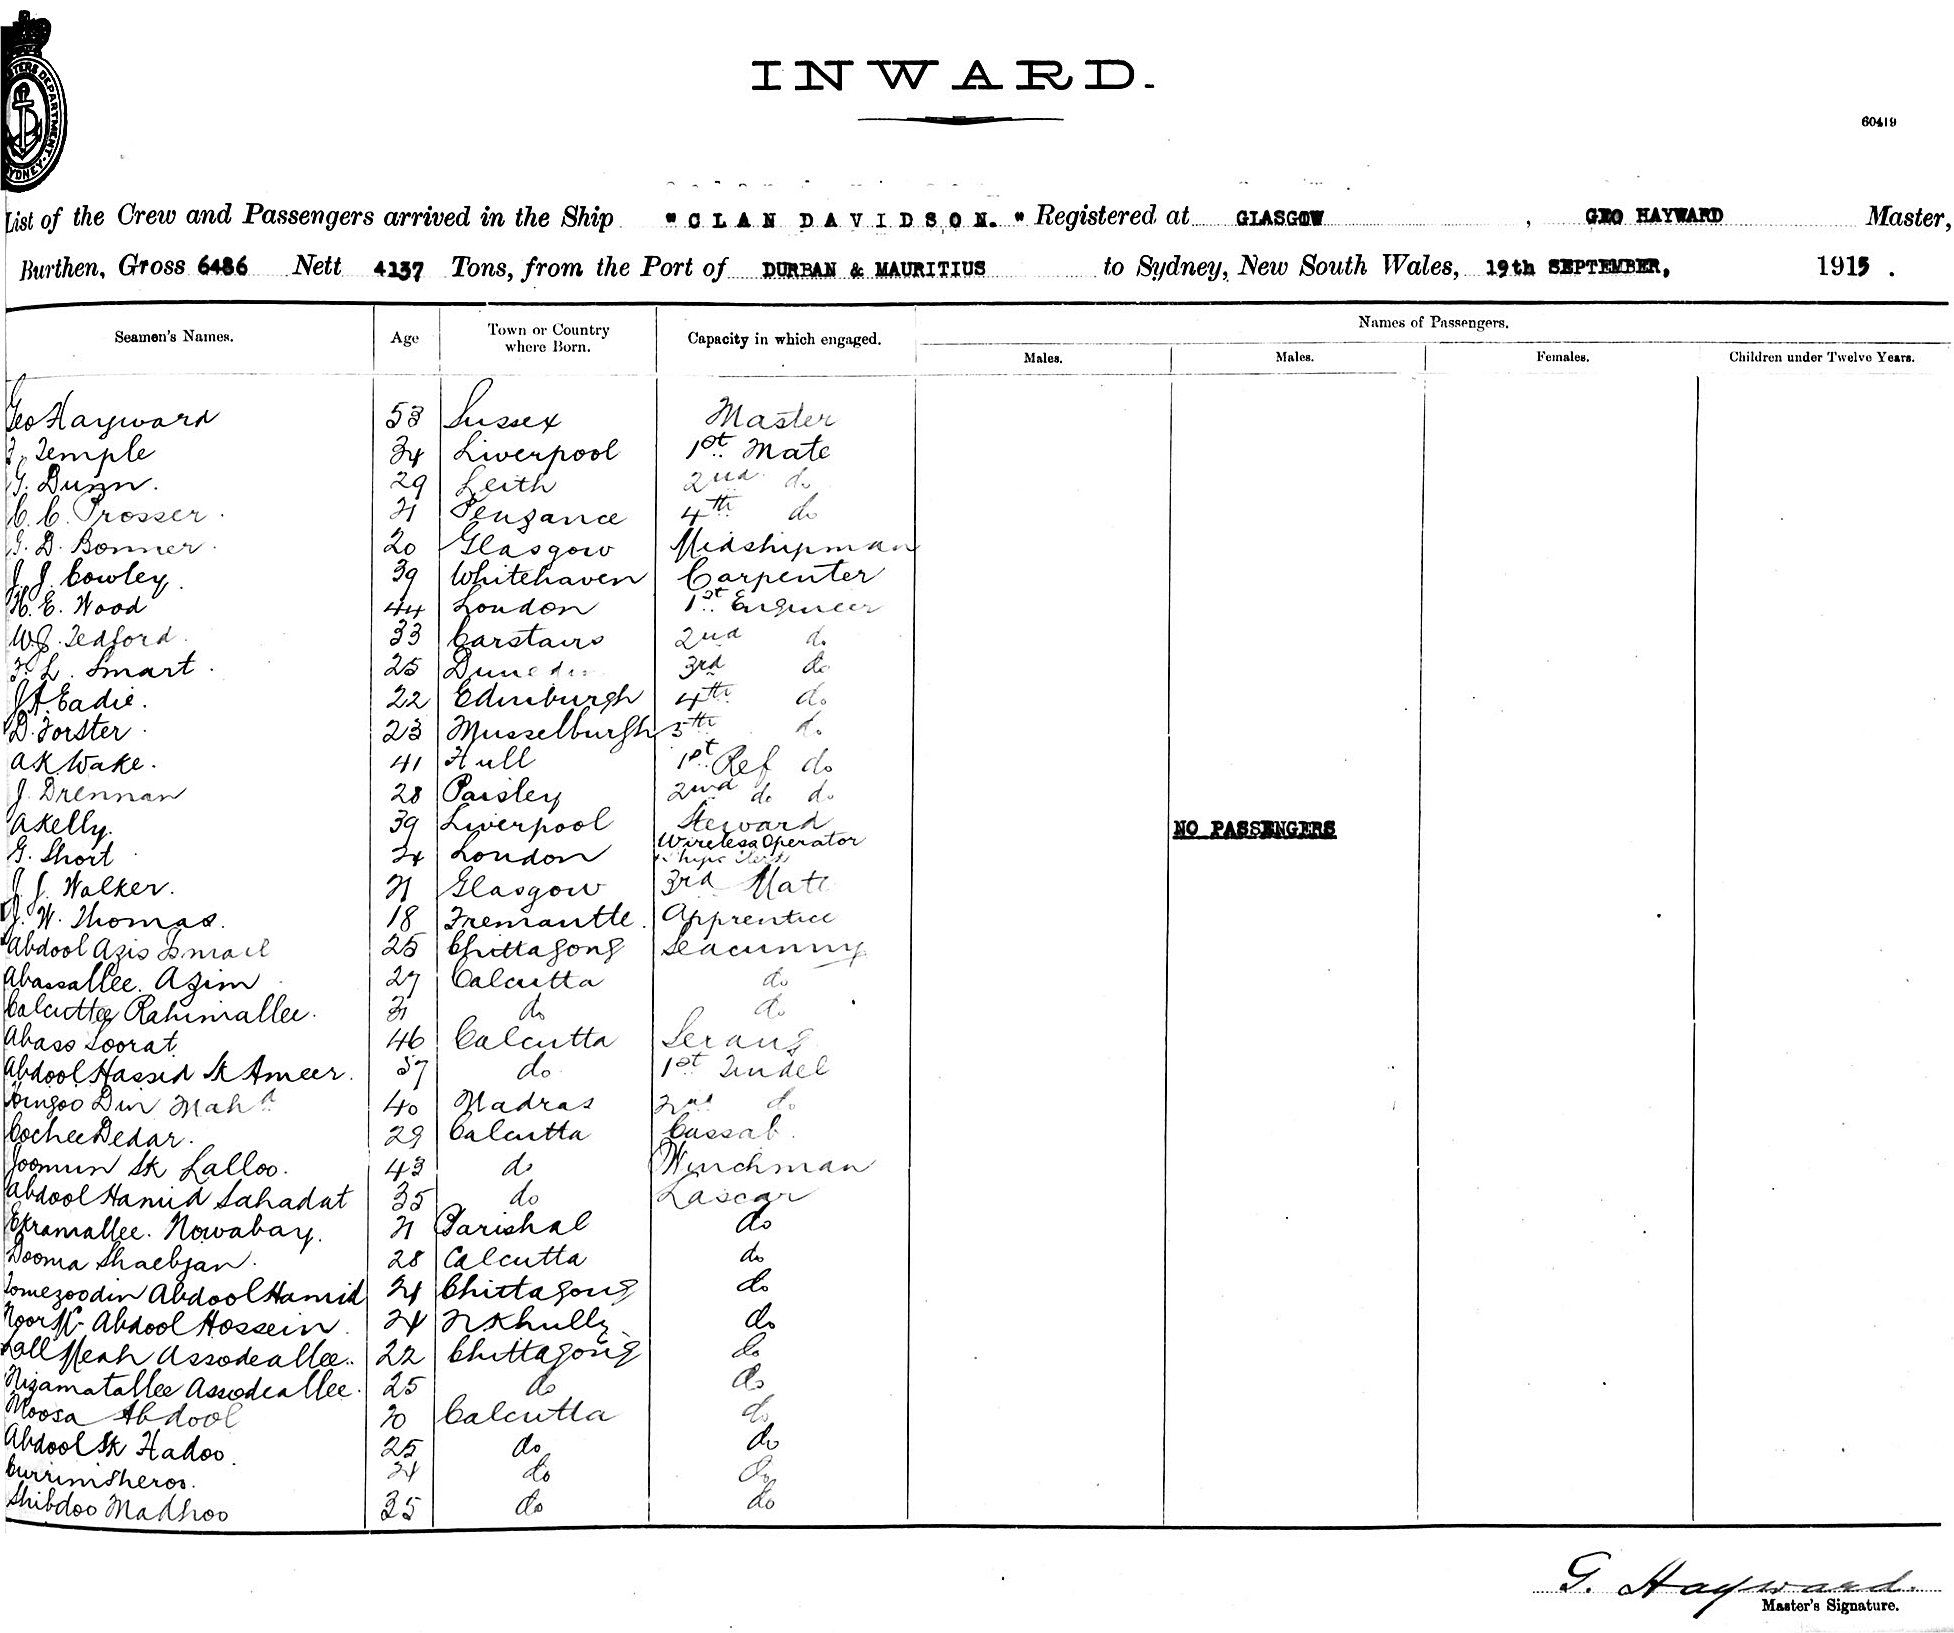 INWARD.
60419
List of the Crew and Passengers arrived in the Ship "CLAN DAVIDSON." Registered at GLASGOW, GEO HAYWARD Master,
Burthen, Gross 6486 Nett 4137 Tons, from the Port of DURBAN & MAURITIUS to Sydney, New South Wales, 19th SEPTEMBER, 1915.
Names of Passengers.
Seamen's Names. Age Town or Country where Born. Capacity in which engaged. Males. Males. Females. Children under Twelve Years.
Geo Hayward 53 Sussex Master
Temple 34 Liverpool 1st Mate
G. Dunn. 29 Leith 2nd do
C. C. Prosser. 21 Penzance 4th do
G. D. Bonner. 20 Glasgow Midshipman
J. J. Cowley. 39 Whitehaven Carpenter
H. E. Wood 44 London 1st Engineer
W. J. Tedford. 33 Carstairs 2nd do
F. L. Smart. 25 Dunedin 3rd do
J A Eadie. 22 Edinburgh 4th do
D. Forster. 23 Musselburgh 5th do
A K Wake. 41 Hull 1st Ref do
J. Drennan 28 Paisley 2nd do do
A Kelly. 39 Liverpool Steward
NO PASSENGERS
G. Short 24 London Wireless Operator
& Ships Clerk
J. J. Walker. 21 Glasgow 3rd Mate
J. W. Thomas. 18 Fremantle. Apprentice
Abdool Azis Ismail 25 Chittagong Seacunny
Abassallee. Azim 27 Calcutta do
Calcuttee Rahimallee. 31 do do
Abass Soorat. 46 Calcutta Serang
Abdool Hassid Sk Ameer. 37 do 1st Tindel
Din Mahd 40 Madras 2nd do
Cochee Dedar. 29 Calcutta Cassab.
Joomun Sk Lalloo. 43 do Winchman
Abdool Hamid Sahadat 35 do Lascar
Ekramallee. Nowabay. 21 Barishal do
Dooma Shaebjan. 28 Calcutta do
Abdool Hamid 24 Chittagong do
Noor Md. Abdool Hossein. 24 do
Lall Meah Assodeallee. 22 Chittagong do
Nizamatallee Assodeallee. 25 do do
Moosa Abdool 20 Calcutta do
Abdool Sk Hadoo. 25 do do
Currim Sheroo. 24 do do
Shibdoo Madhoo 35 do do
G. Hayward.
Master's Signature.